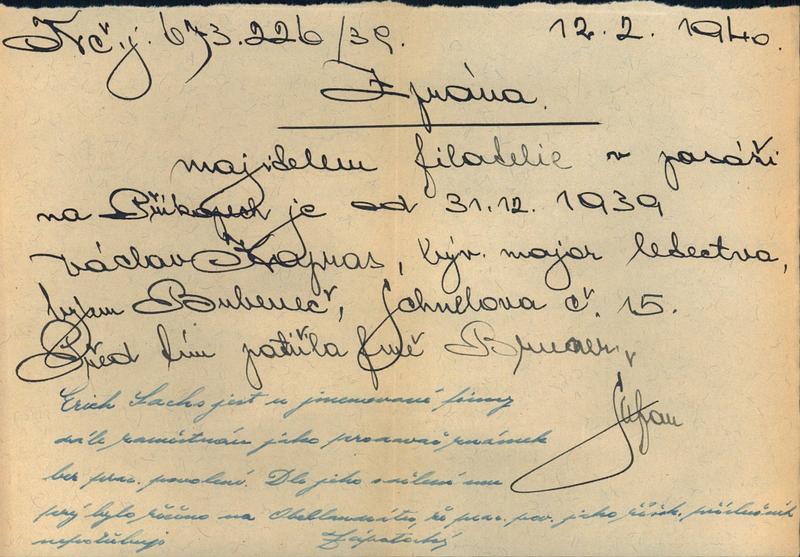 K č. j. 673.226/39. 12. 2. 1940.
Zpráva.
majitelem filatelie v pasáži
na Příkopech je od 31.12. 1939
Václav Kapras, býv. major letectva,
bytem Bubeneč, Schnellova č. 15.
Před tím patřila firmě Bruner,
Erich Sachs jest u jmenované firmy
stále zaměstnán jako prodavač známek
bez prac. povolení. Dle jeho sdělení mu
prý bylo řečeno na Oberlandrátu, že prac. pov. jako říšsk. příslušník
nepotřebuje